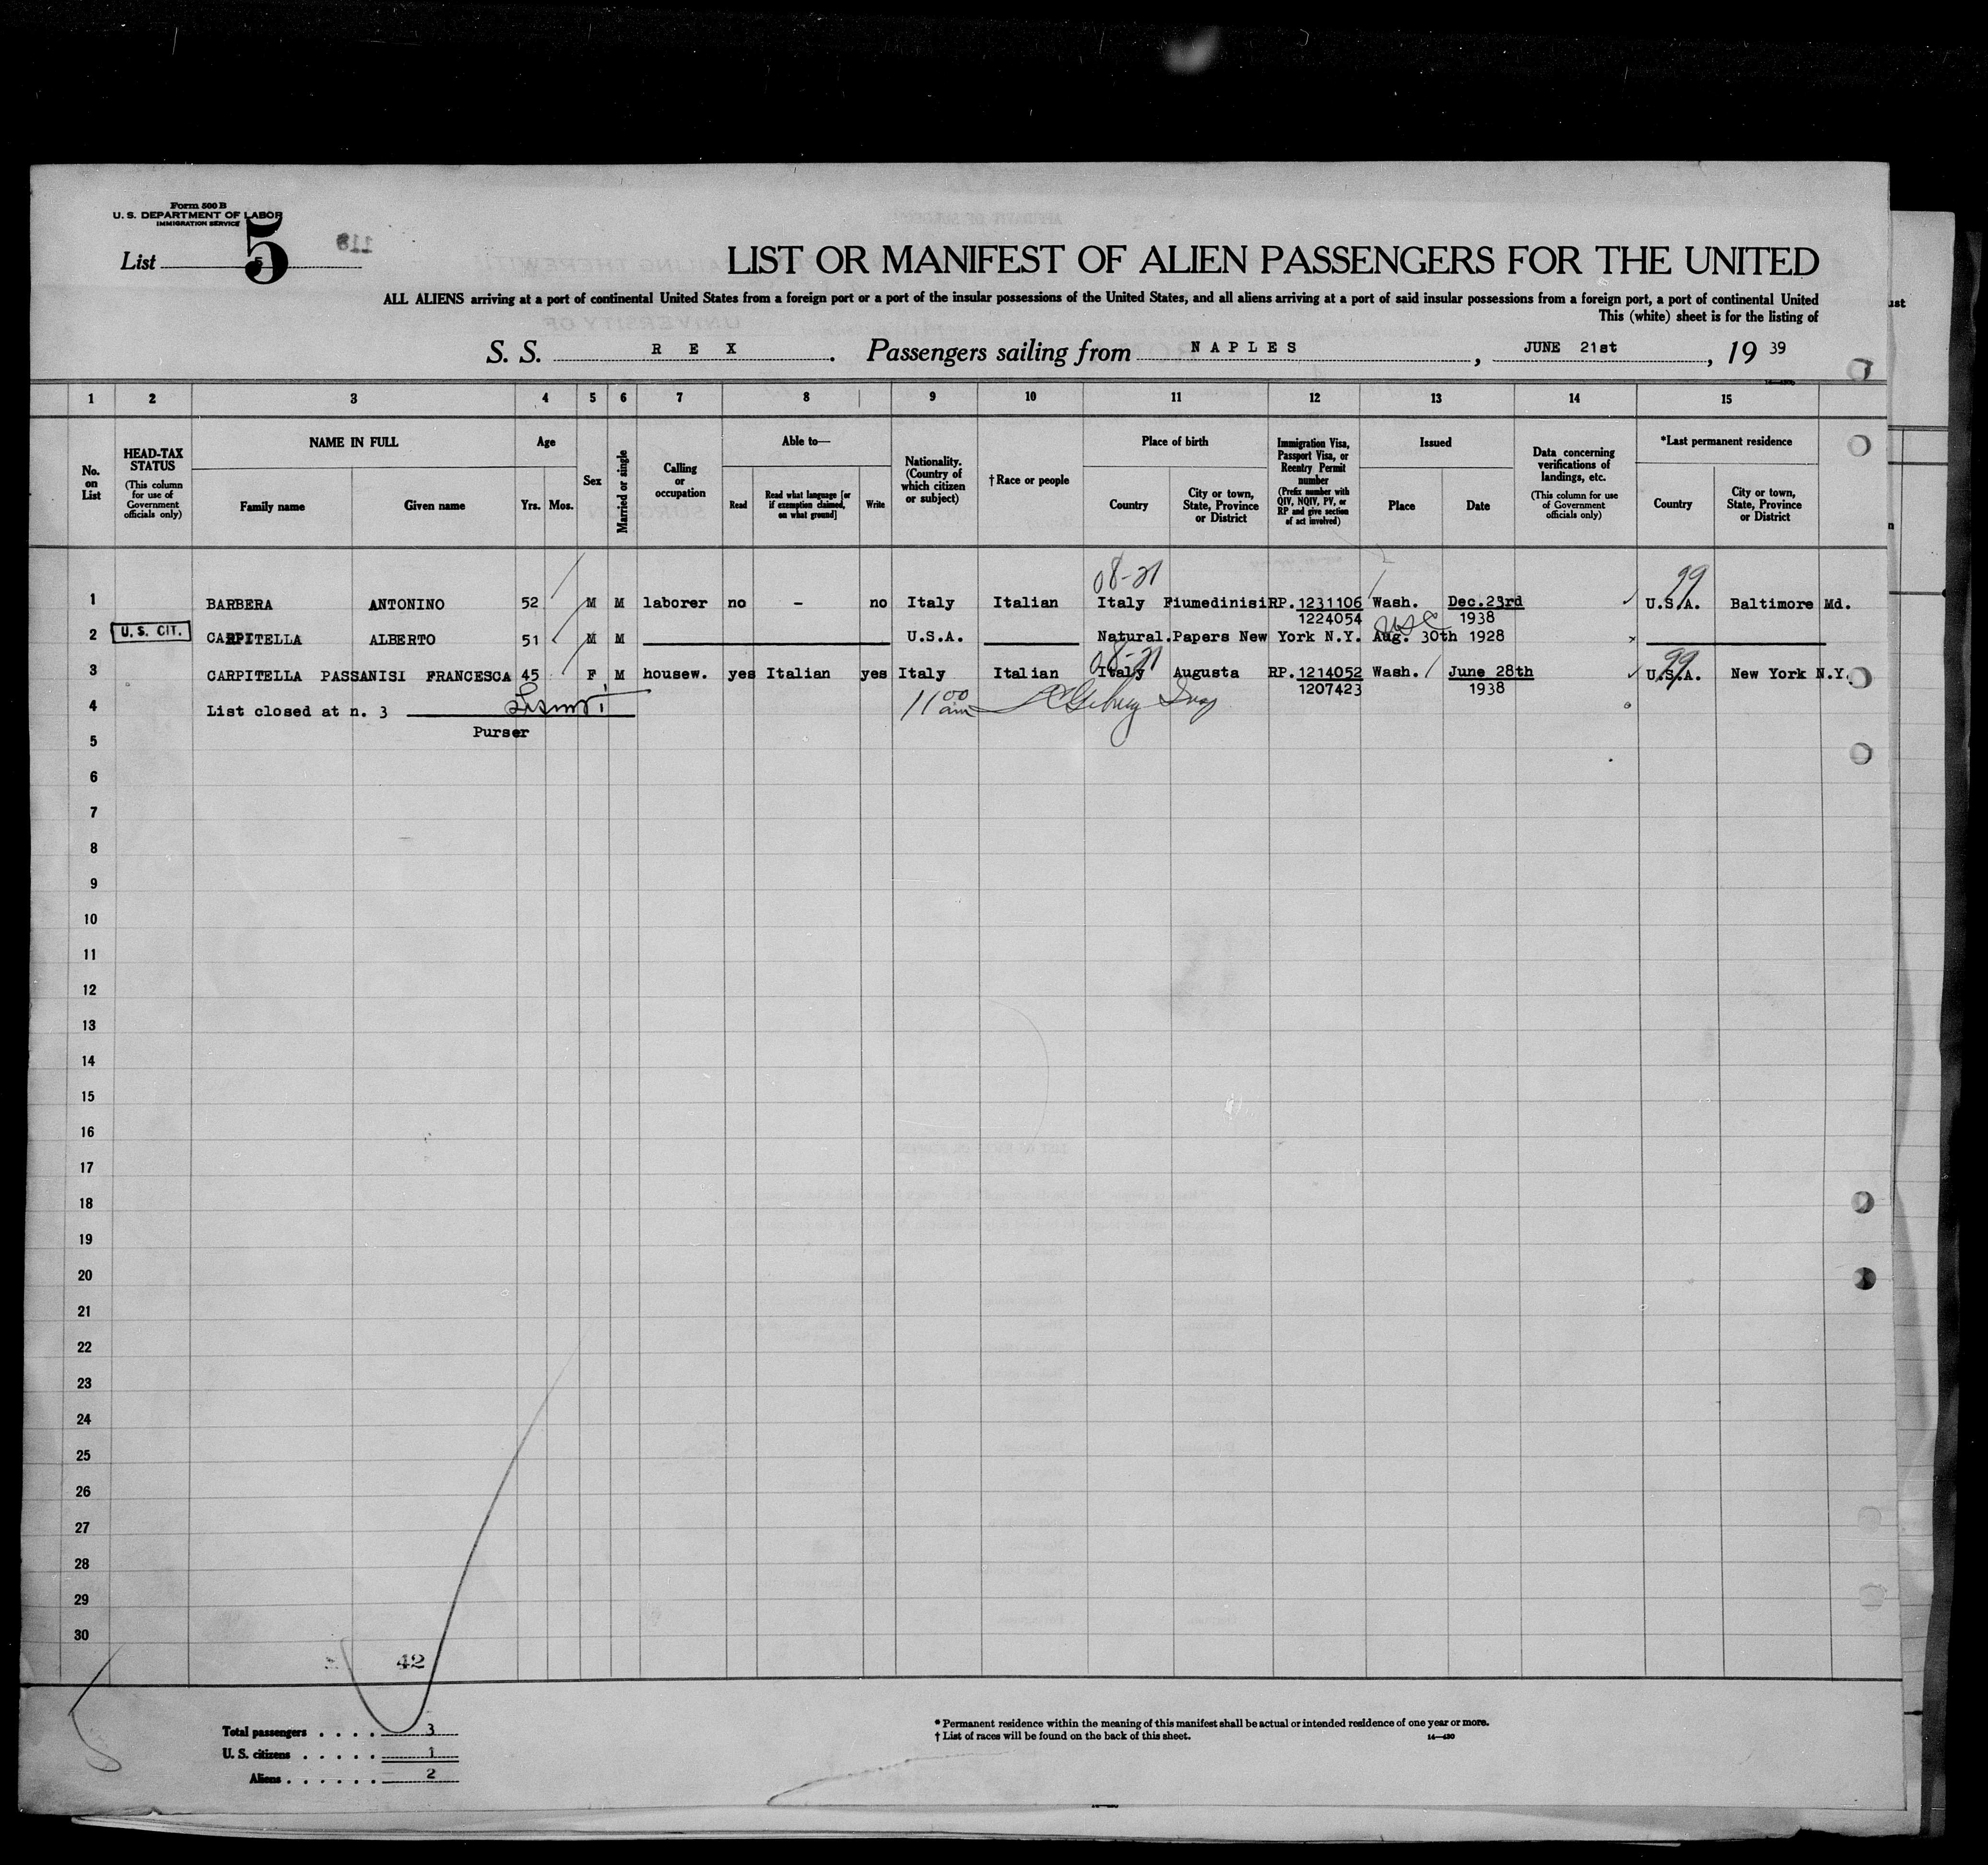 Form 500 B
U. S. DEPARTMENT OF LABOR
IMMIGRATION SERVICE
List 5
5
118
LIST OR MANIFEST OF ALIEN PASSENGERS FOR THE UNITED
ALL ALIENS arriving at a port of continental United States from a foreign port or a port of the insular possessions of the United States, and all aliens arriving at a port of said insular possessions from a foreign port, a port of continental United
This (white) sheet is for the listing of
S. S. R E X. Passengers sailing from N A P L E S, JUNE 21st, 19 39
1 2 3 4 5 6 7 8 9 10 11 12 13 14 15
No. on List
HEAD-TAX STATUS (This column for use of Government officials only)
NAME IN FULL
Family name Given name
Age
Yrs. Mos.
Sex
Married or single
Calling or occupation
Able to—
Read Read what language [or if exemption claimed, on what ground] Write
Nationality. (Country of which citizen or subject)
†Race or people
Place of birth
Country City or town, State, Province or District
Immigration Visa, Passport Visa, or Reentry Permit number (Prefix number with QIV, NQIV, PV, or RP and give section of act involved)
Issued
Place Date
Data concerning verifications of landings, etc. (This column for use of Government officials only)
*Last permanent residence
Country City or town, State, Province or District
08-21 99
1 BARBERA ANTONINO 52 M M laborer no - no Italy Italian Italy Fiumedinisi RP. 1231106 Wash. Dec.23rd U.S.A. Baltimore Md.
1224054 1938
2 U. S. CIT. CARPITELLA ALBERTO 51 M M U.S.A. Natural.Papers New York N.Y. Aug. 30th 1928
USC
08-21 99
3 CARPITELLA PASSANISI FRANCESCA 45 F M housew. yes Italian yes Italy Italian Italy Augusta RP. 1214052 Wash. June 28th U.S.A. New York N.Y.
1207423 1938
4 List closed at n. 3 11 00 am
Purser
5
6
7
8
9
10
11
12
13
14
15
16
17
18
19
20
21
22
23
24
25
26
27
28
29
30
42
Total passengers . . . . 3
U. S. citizens . . . . . 1
Aliens . . . . . . 2
* Permanent residence within the meaning of this manifest shall be actual or intended residence of one year or more.
† List of races will be found on the back of this sheet. 14—430